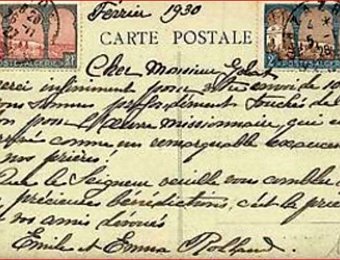 Février 1930
CARTE POSTALE
POSTES ALGERIE
POSTES ALGERIE
Cher Monsieur
erci infiniment pour votre envoi de 10
ous sommes profondément touchés de
on pour l'Œuvre missionnaire qui e
comme un remarquable exauce
nos prières!
Que le Seigneur veuille vous combler d
précieuses bénédictions, c'est la priè
vos amis dévoués
Emile et Emma Rolland.